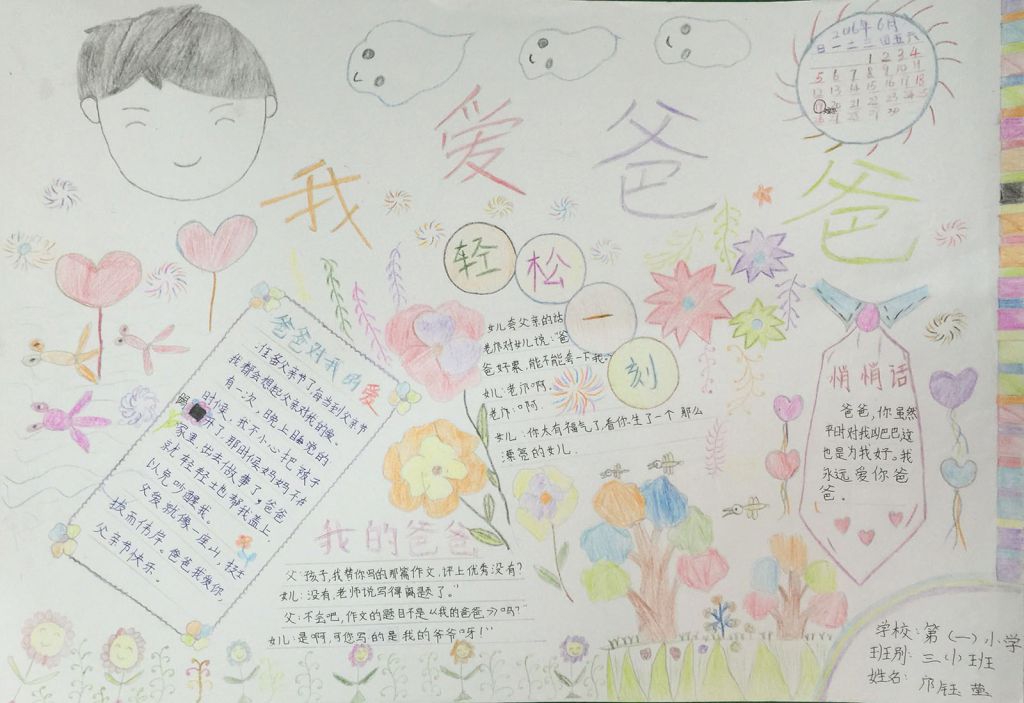 我爱爸爸
2016年6月
日 一 二 三 四 五 六
1 2 3 4
5 6 7 8 9 10 11
12 13 14 15 16 17 18
21 22 23 24 25
28 29 30
轻松一刻
女儿夸父亲的话
老师对女儿说:"爸
爸好累,能不能夸一下我。
女儿:老师啊。
老师:啊。
女儿:你太有福气了,看你生了一个那么
漂亮的女儿.
爸爸对我的爱
父亲节了每当到父亲节
我都会想起父亲对我的爱。
有一次,晚上睡觉的
时候,我不小心把孩子
了,那时候妈妈不在
家里出去做事了。爸爸
就轻轻地帮我盖上,
以免吵醒我。
父爱就像一座山,挺
拔而伟岸。爸爸我爱你,
父亲节快乐.
我的爸爸
父:孩子,我替你写的那篇作文,评上优秀没有?
女儿:没有,老师说写得离题了。"
父:不会吧,作文的题目不是《我的爸爸》吗?"
女儿:是啊,可您写的是我的爷爷呀!"
悄悄话
爸爸,你虽然
平时对我凶巴巴,这
也是为我好。我
永远爱你爸
爸。
学校:第(一)小学
班别:三(小)班
姓名:邝钰莹